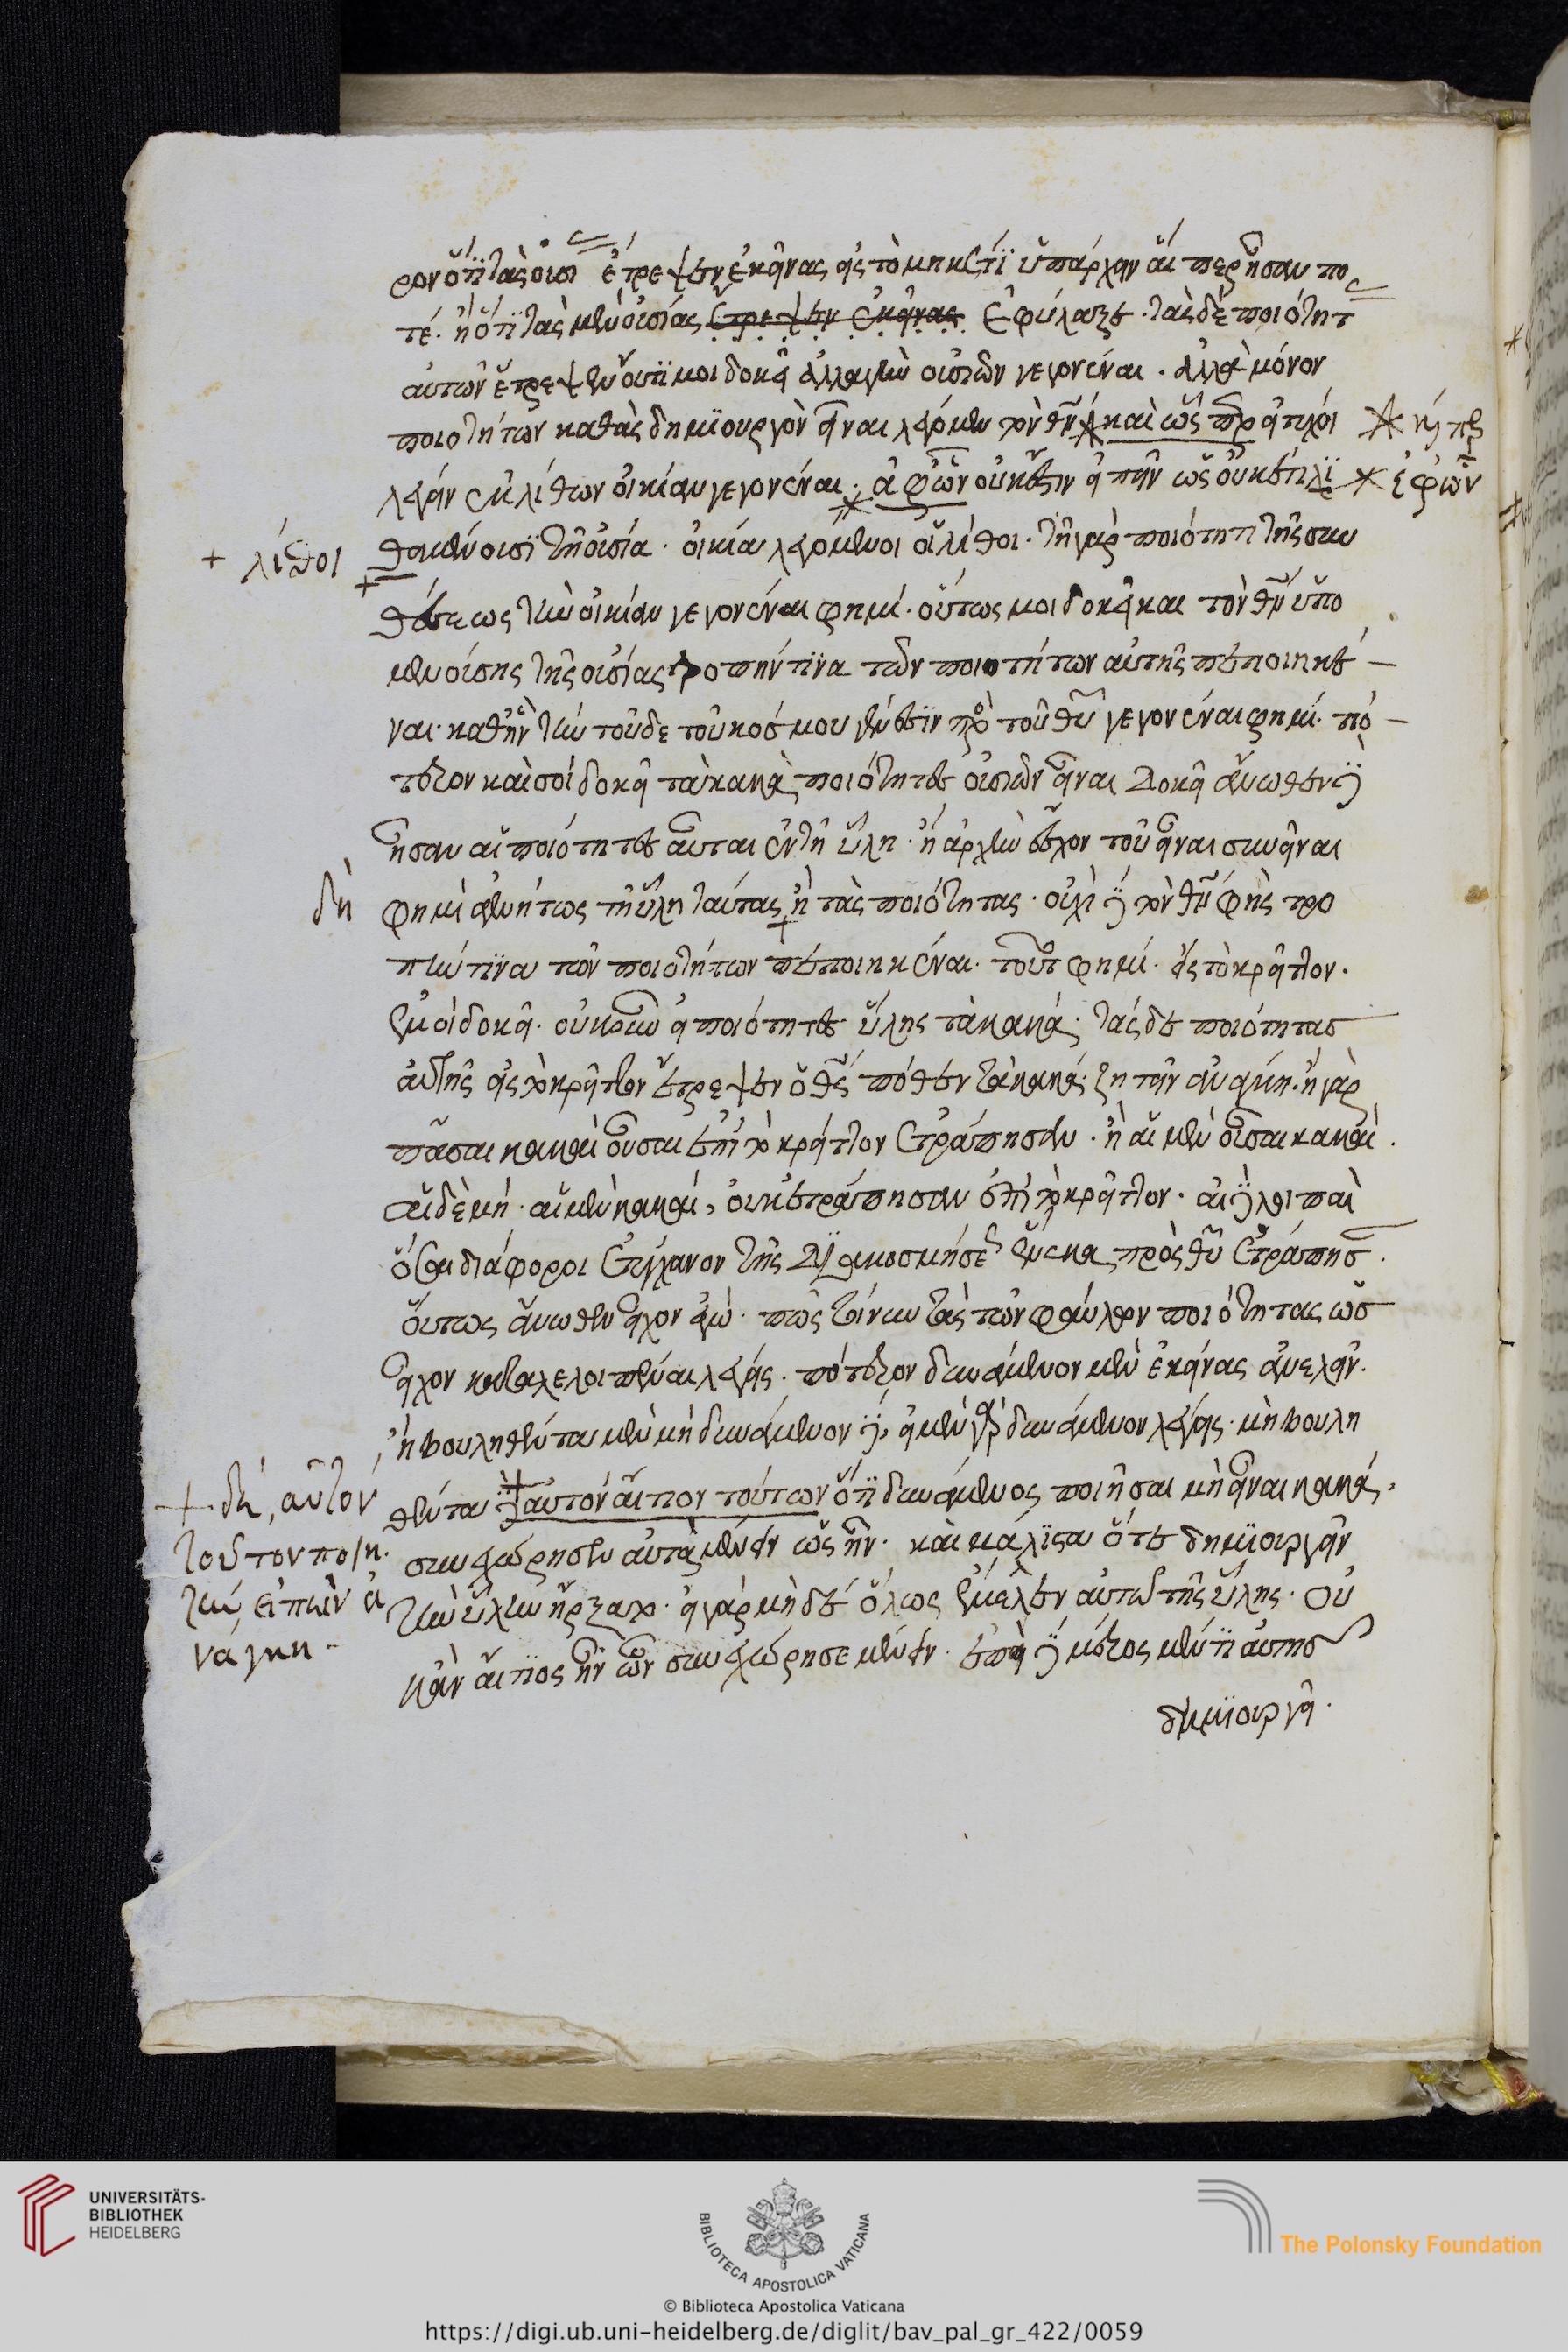 ρον ὅτι τὰς οὐσί ἔτρεψεν ἐκείνας εἰς τὸ μηκέτι ὑπάρχειν αἵπερ ἦσαν πο
τέ. ἢ ὅτι τὰς μὲν οὐσίας ἔτρεψεν ἐκείνας ἐφύλαξε. τὰς δὲ ποιότητ
αὐτῶν ἔτρεψεν οὔτι μοι δοκεῖ ἀλλαγὴν οὐσιῶν γεγονέναι. ἀλλὰ μόνον
ποιοτήτων καθὰς δημιουργὸν εἶναι λέγομεν τὸν θν καὶ ὡς
λέγειν ἐκ λίθων οἰκίαν γεγονέναι. ἐφ' ὧν οὐκ ἔστιν εἰπεῖν ὡς οὐκ ἔτι λί
+ λίθοι
θοι μένουσι τῇ οὐσίᾳ. οἰκία γενόμενοι οἱ λίθοι. τῇ γὰρ ποιότητι τῆς συν
θέσεως τὴν οἰκίαν γεγονέναι φημί. οὕτως μοι δοκεῖ και τὸν θν ὑπο
μενούσης τῆς οὐσίας τροπήν τινα τῶν ποιοτήτων αὐτῆς πεποιηκέ
ναι. καθ' ἣν τὴν τοῦδε τοῦ κόσμου γένεσιν πρὸ τοῦ θυ γεγονέναι φημί. πό
τερον καὶ σοὶ δοκεῖ τὰ κακὰ ποιότητες οὐσιῶν εἶναι δοκεῖ ἄνωθεν δὲ
ἦσαν αἱ ποιότητες αὗται ἐν τῇ ὕλῃ. ἢ ἀρχὴν ἔσχον τοῦ εἶναι συνεῖναι
δὴ
φημὶ ἀγενήτως τῇ ὕλῃ ταύτας ἢ τὰς ποιότητας. οὐχὶ δὲ τὸν θν φὴς τρο
πήν τινα τῶν ποιοτήτων πεποιηκέναι. τοῦτο φημί. εἰς τὸ κρεῖττον.
ἐμοὶ δοκεῖ. οὐκοῦν εἰ ποιότητες ὕλης τὰ κακά. τὰς δὲ ποιότητασ
αὐτῆς εἰς τὸ κρεῖττον ἔτρεψεν ὁ θς πόθεν τὰ κακά. ζητεῖν ἀνάγκη. ἢ γὰρ
πᾶσαι κακαὶ οὖσαι ἐπὶ τὸ κρεῖττον ἐτράπησαν. ἢ αἱ μὲν οὖσαι κακαί.
αἱ δὲ μή. αἱ μὲν κακαὶ, οὐκ ἐτράπησαν ἐπὶ τὸ κρεῖττον. αἱ δὲ λοιπαὶ
ὅσαι διάφοροι ἐτύγχανον τῆς διακοσμήσε ἕνεκα πρὸς θυ ἐτράπησ.
οὕτως ἄνωθεν εἶχον ἐγώ. πῶς τοίνυν τὰς τῶν φαύλων ποιότητας ὡσ
εἶχον καταλελοιπέναι λέγεις. πότερον δυνάμενον μὲν ἐκείνας ἀνελεῖν.
ἢ βουληθέντα μὲν μὴ δυνάμενον δὲ. εἰ μὲν γὰρ δυνάμενον λέγεις. μὴ βουλη
+ δὲ, αὐτὸν
θέντα δὲ αὐτὸν αἴτιον τούτων ὅτι δυνάμενος ποιῆσαι μὴ εἶναι κακά.
τοῦτον ποιη.
συνεχώρησεν αὐτὰ μένειν ὡς ἦν. καὶ μάλιστα ὅτε δημιουργεῖν
τὴν, εἰπεῖν ἀ
τὴν ὕλην ἤρξατο. εἰ γὰρ μηδὲ ὅλως ἔμελεν αὐτῷ τῆς ὕλης. οὐ
νάγκη.
κἂν αἴτιος ἦν ὧν συνεχώρησε μένειν. ἐπεὶ δὲ μέρος μέν τι αὐτησ
δημιουργεῖ.
UNIVERSITÄTS-
BIBLIOTHEK
HEIDELBERG
BIBLIOTECA APOSTOLICA VATICANA
The Polonsky Foundation
© Biblioteca Apostolica Vaticana
https://digi.ub.uni-heidelberg.de/diglit/bav_pal_gr_422/0059